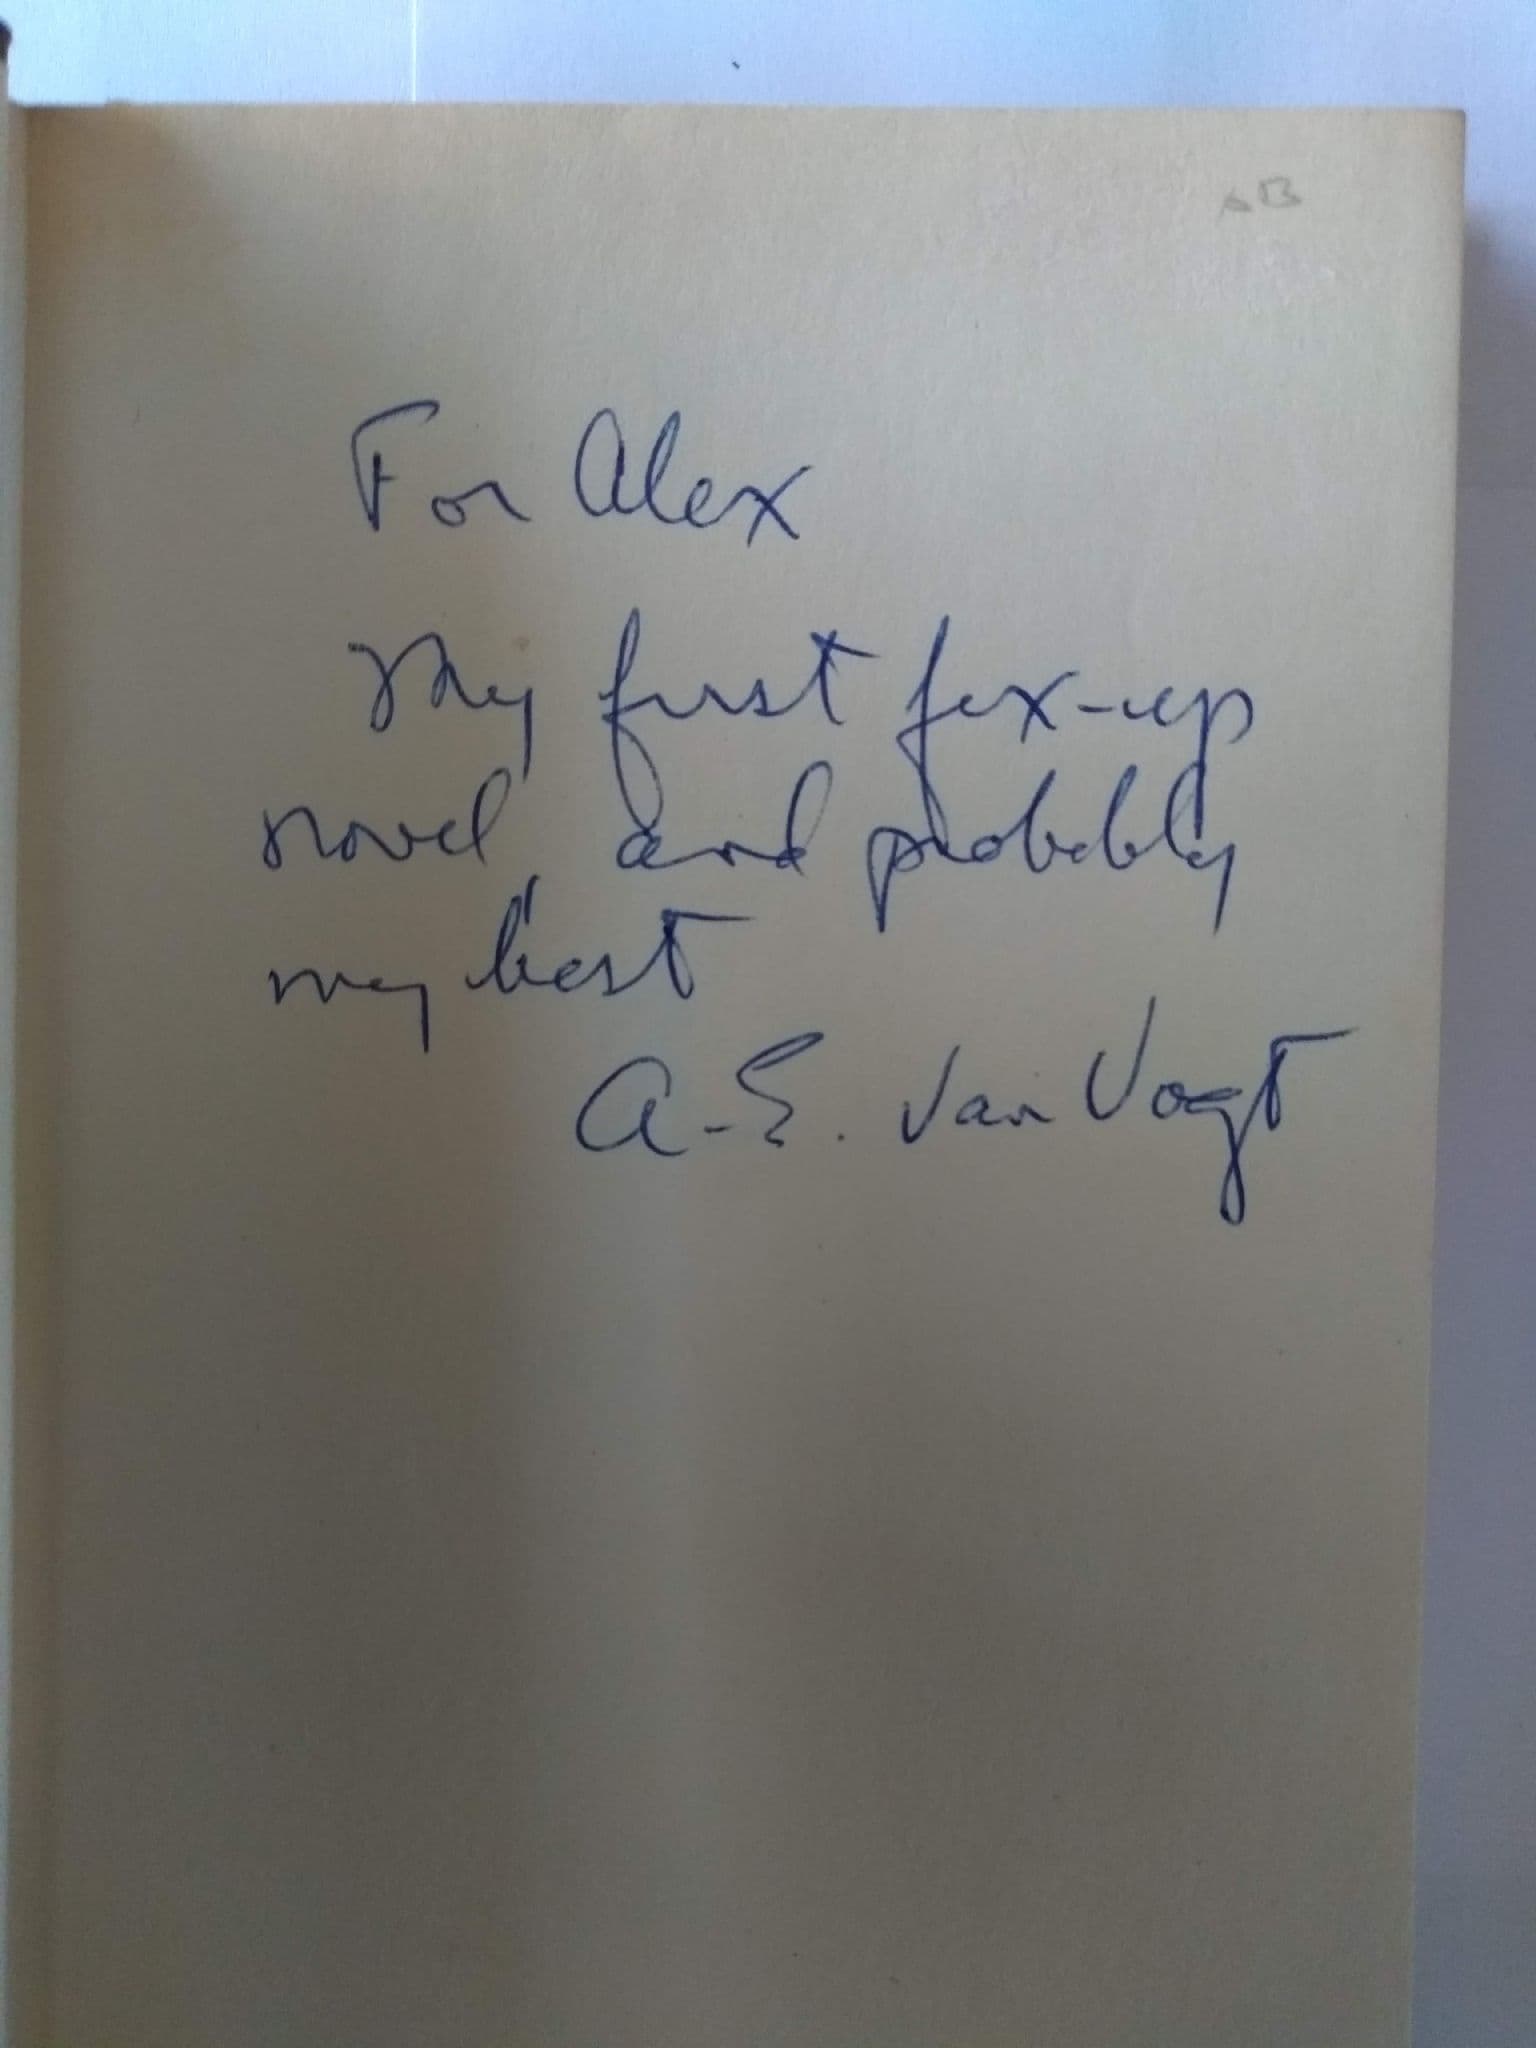 For Alex
My first fix-up
novel, and probably
my best
A. E. van Vogt